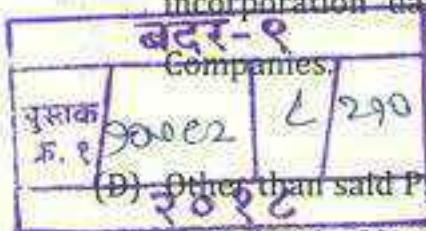 incorporation
बदर-९
Companies.
पुस्तक
क्र. १
८ २१०
(D) Other than said P
२०१८